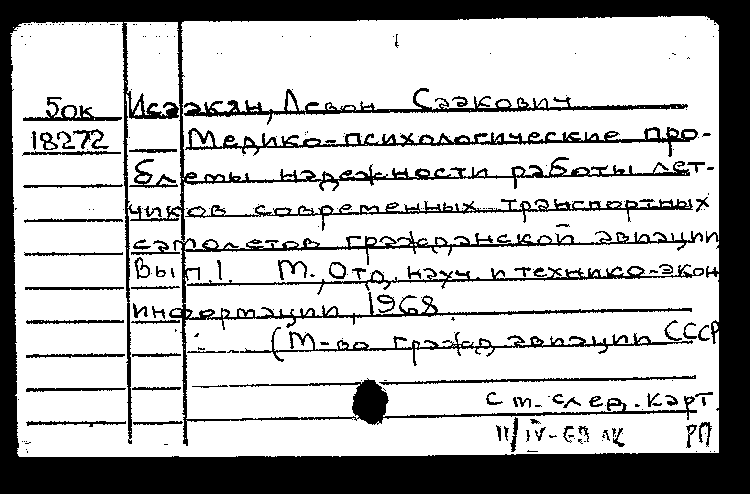 5ок Исаакян, Левон Саакович
18272 Медико-психологические про-
блемы надежности работы лет-
чиков современных транспортных
самолетов гражданской авиации
Вып.1. М., Отд. науч. и технико-экон
информации, 1968.
(М-во гражд авиации СССР
см. след. карт.
11/IV-69 РП